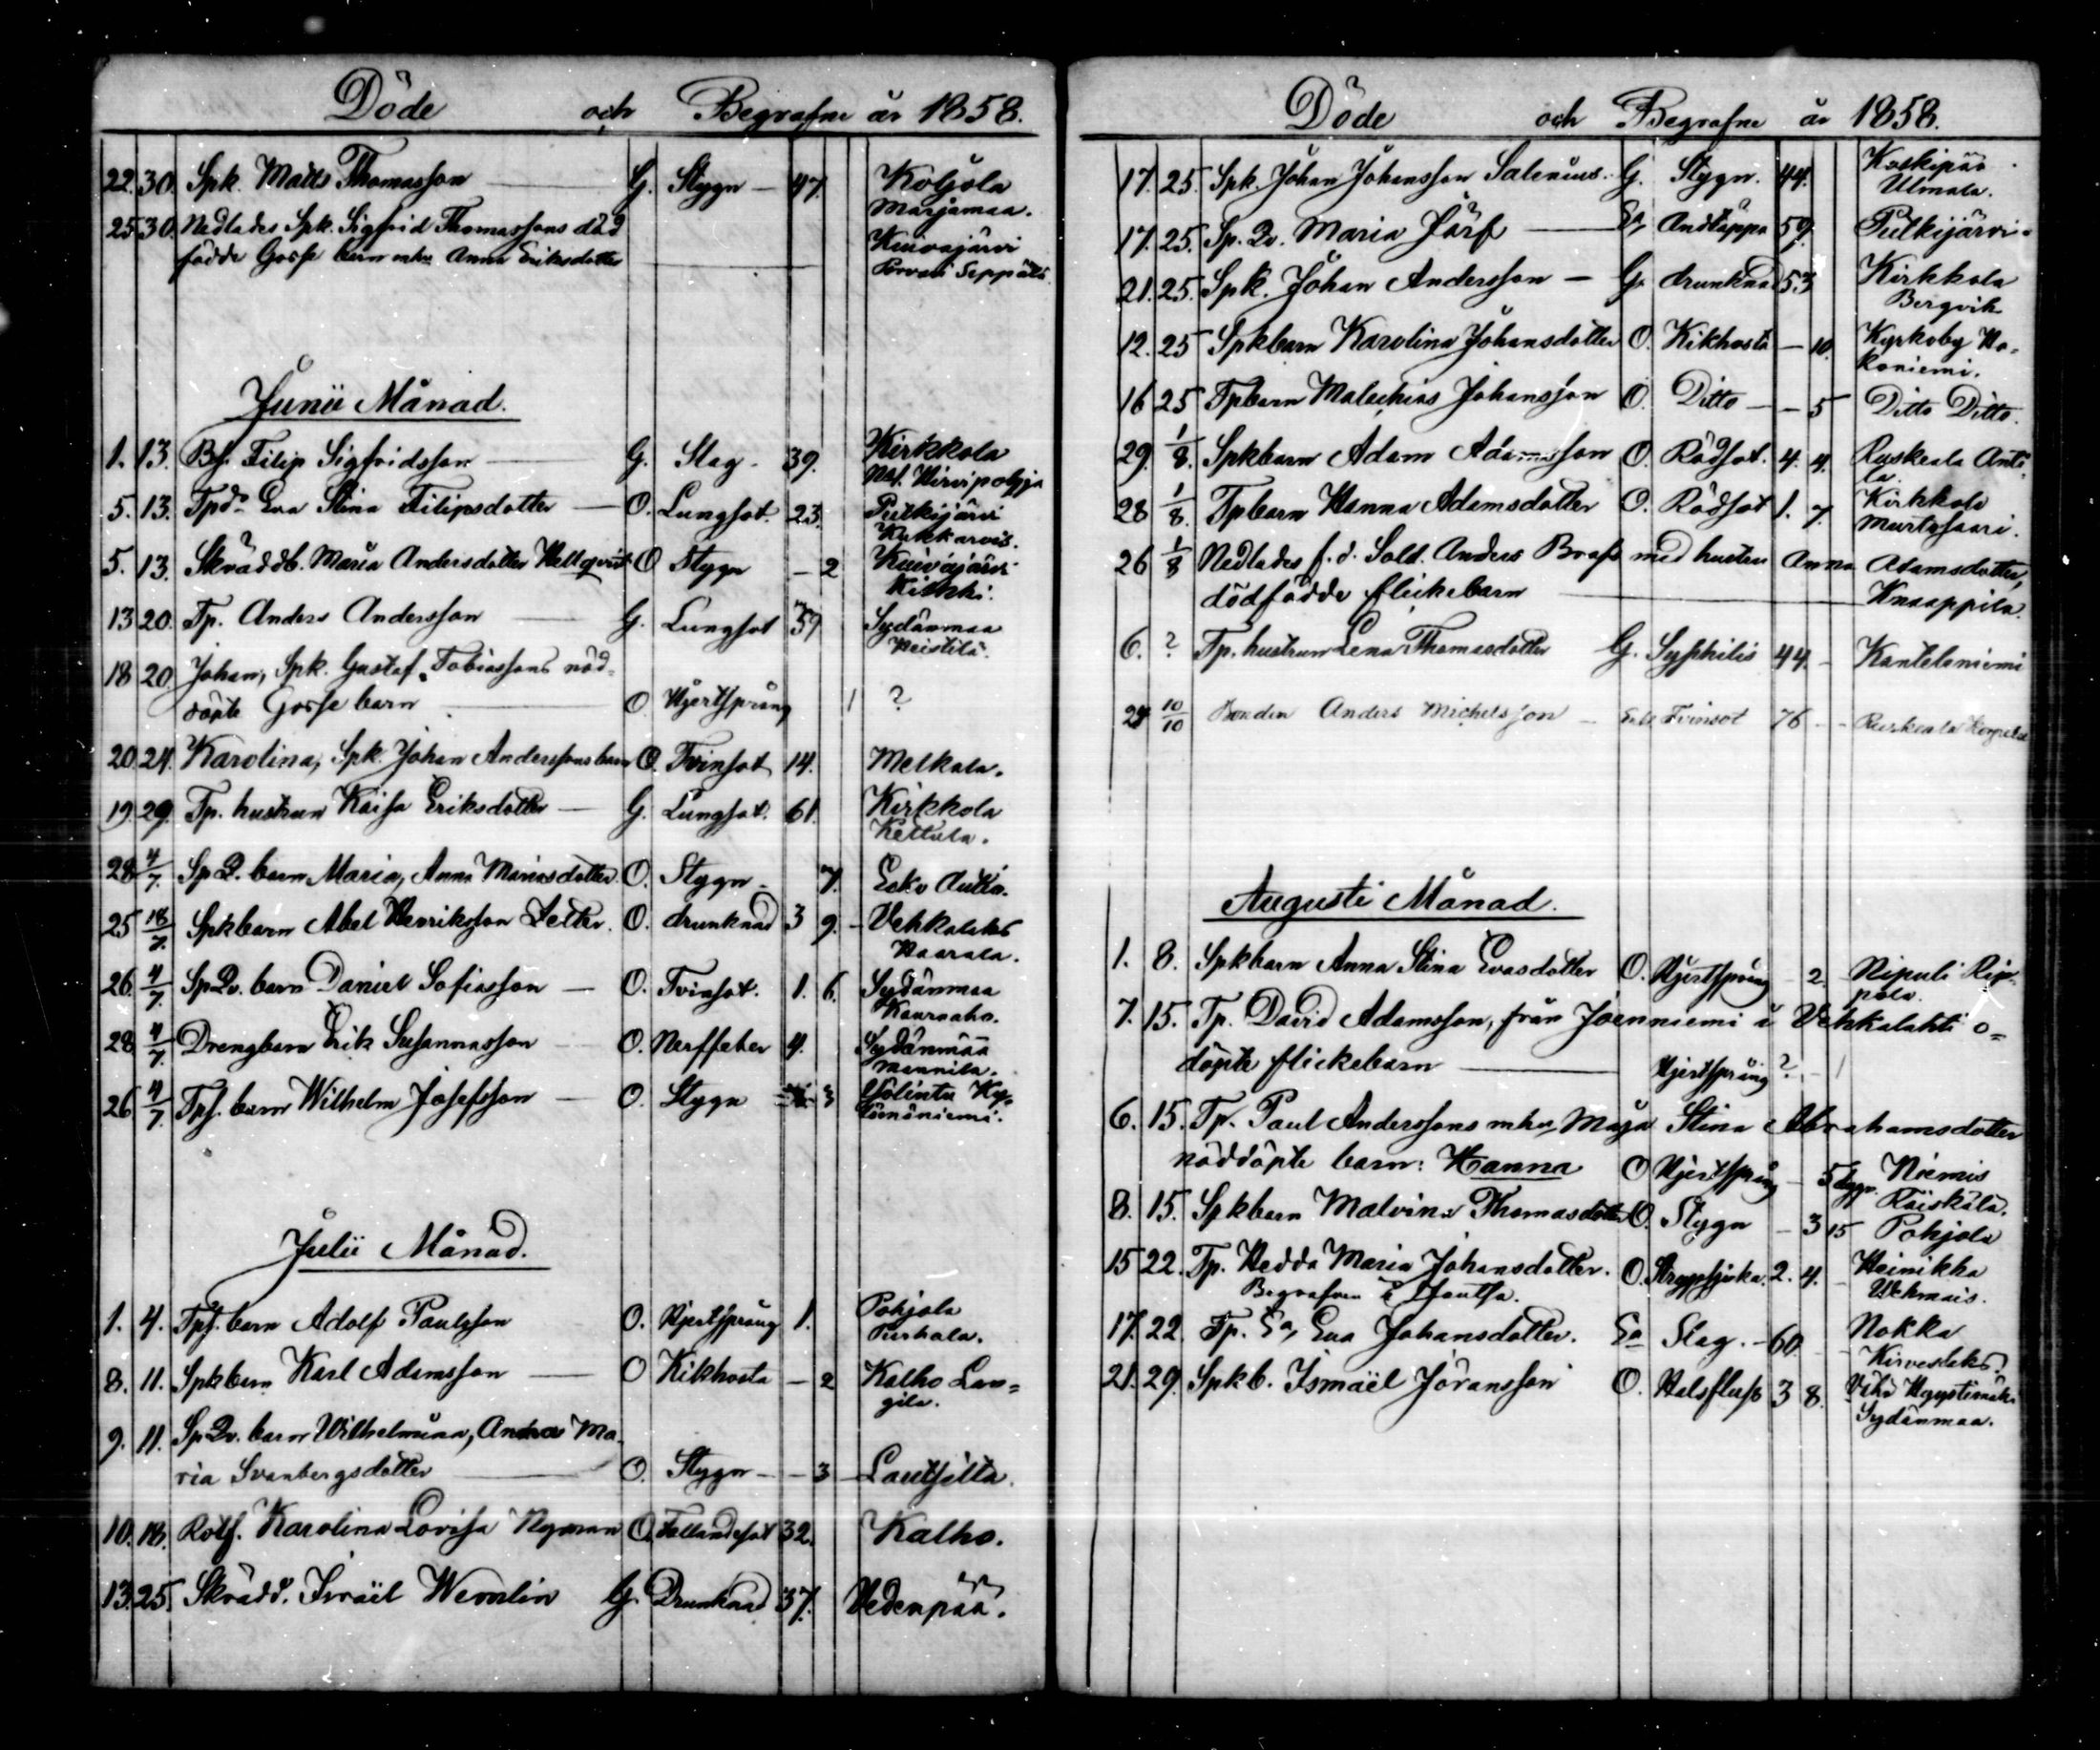 Döde och Begrafne år 1858.
22. 30. Spk. Matts Thomasson G. Stygn 47. Koljola
Marjamaa.
25 30. Nedlades Spk. Sigfrid Thomassons död Kuivajärvi
födde Gosse barn mhu Anna Eriksdotter Seppälä
Junii Månad.
1. 13. Bs. Filip Sigfridsson G. Slag 39. Kirkkola
5. 13. Tpdr Eva Stina Filipsdotter O. Lungsot. 23. Pulkijärvi
5. 13. Skräddb. Maria Andersdotter Hellqvist O Stygn – 2 Kuivajärvi
13 20. Tp. Anders Andersson G. Lungsot 59 Sydänmaa
Heistilä.
18 20. Johan, Spk. Gustaf Tobiassons nöd-
döpte Gosse barn O Hjertsprång 1 ?
20. 24. Karolina, Spk. Johan Anderssons barn O Tvinsot 14. Melkola.
19. 29. Tp. hustrun Kaisa Eriksdotter G. Lungsot. 61. Kirkkola
Kettula.
28 4/7. Sp Q. barn Maria, Anna Mariasdotter O. Stygn 7. Esko
25 18/7. Spkbarn Abel Henriksson O. drunknad 3 9. Vehkalahti
Haarala.
26. 4/7. SpQv. barn Daniel Sofiasson O. Tvinsot. 1. 6. Sydänmaa
28 4/7. Drengbarn Erik Susannasson O. Nerffeber 4. Sydänmaa
Mannila.
26 4/7. Tpf. barn Wilhelm Josefsson O. Stygn 3
Julii Månad.
1. 4. Tpf. barn Adolf Paulsson O. Hjertsprång 1. Pohjola
8. 11. Spkbarn Karl Adamsson O Kikhosta – 2 Kalho Lau-
gila.
9. 11. SpQv. barn Wilhelmina, Andras Ma-
ria Svanbergsdotter O. Stygn – 3 Lautsilta
10. 18. Rotf. Karolina Lovisa Nyman O. Fallandesot 32. Kalho.
13. 25. Skrädd. Israël Wernlin G. Drunknad 37. Vedenpää.
Döde och Begrafne år 1858.
17. 25. Spk. Johan Johansson Salenius. G. Stygn. 44. Koskipää
Ulmala.
17. 25. Sp. Qv. Maria Järf Ea Andtäppa 59. Pulkijärvi
21. 25. Spk. Johan Andersson G. drunknad 53 Kirkkola
Bergvik
12. 25 Spkbarn Karolina Johansdotter O. Kikhosta – 10. Kyrkoby Ha-
koniemi.
16 25 Tpbarn Malachias Johansson O. Ditto – 5 Ditto Ditto.
29. 1/8. Spkbarn Adam Adamsson O. Rödsot. 4. 4. Ruskeala Anti
la.
28 1/8. Tpbarn Hanna Adamsdotter O. Rödsot 1. 7. Kirkkola
Murtosaari.
26 1/8 Nedlades f. d. Sold. Anders Brafs med hustru Anna Adamsdotter,
dödfödde flickebarn Knaappila.
6. ? Tp. hustrun Lena Thomasdotter G. Syphilis 44. Kanteleniemi
24 10/10 Bonden Anders Michelsson Enkl Tvinsot 76 Ruskeala
Augusti Månad.
1. 8. Spkbarn Anna Stina Evasdotter O. Hjertsprång 2. Nipuli Rip-
pola.
7. 15. Tp. David Adamsson, från Joenniemi i Vehkalahti o-
döpte flickebarn Hjertsprång ? 1
6. 15. Tp. Paul Anderssons mhu, Maja Stina Abrahamsdotter
nöddöpte barn: Hanna O Hjertsprång 5 dygn. Niemis
Räiskälä.
8. 15. Spkbarn Malvina Thomasdotter O. Stygn – 3 15 Pohjola
15 22. Tp. Hedda Maria Johansdotter. O. Strypsjuka. 2. 4. Heinikka
Begrafven i Joutsa. Uckmais.
17. 22. Tp. Ea, Eva Johansdotter. Ea Slag. 60. Nokka
21. 29. Spkb. Ismaël Jöransson O. Halsfluss 3 8.
Sydänmaa.